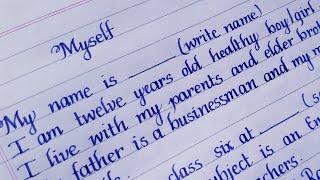 Myself
My name is ______ (write name)
I am twelve years old healthy boy/girl.
I live with my parents and elder
father is a businessman and my
class six at ____
subject is an